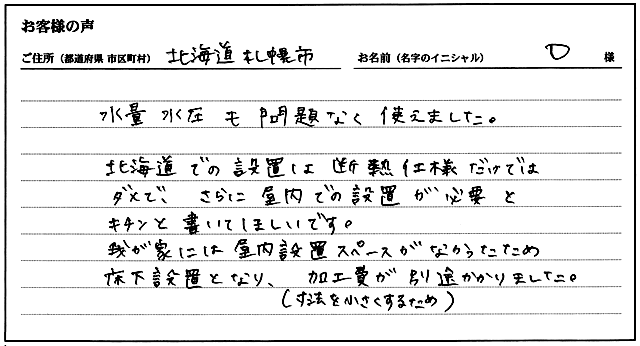 お客様の声
ご住所（都道府県 市区町村） 北海道札幌市 お名前（名字のイニシャル） D 様
水量 水圧 も 問題なく 使えました。
北海道での設置は 断熱仕様だけでは
ダメで、さらに屋内での設置が必要と
キチンと書いてほしいです。
我が家には屋内設置スペースがなかったため
床下設置となり、加工費が別途かかりました。
（寸法を小さくするため）